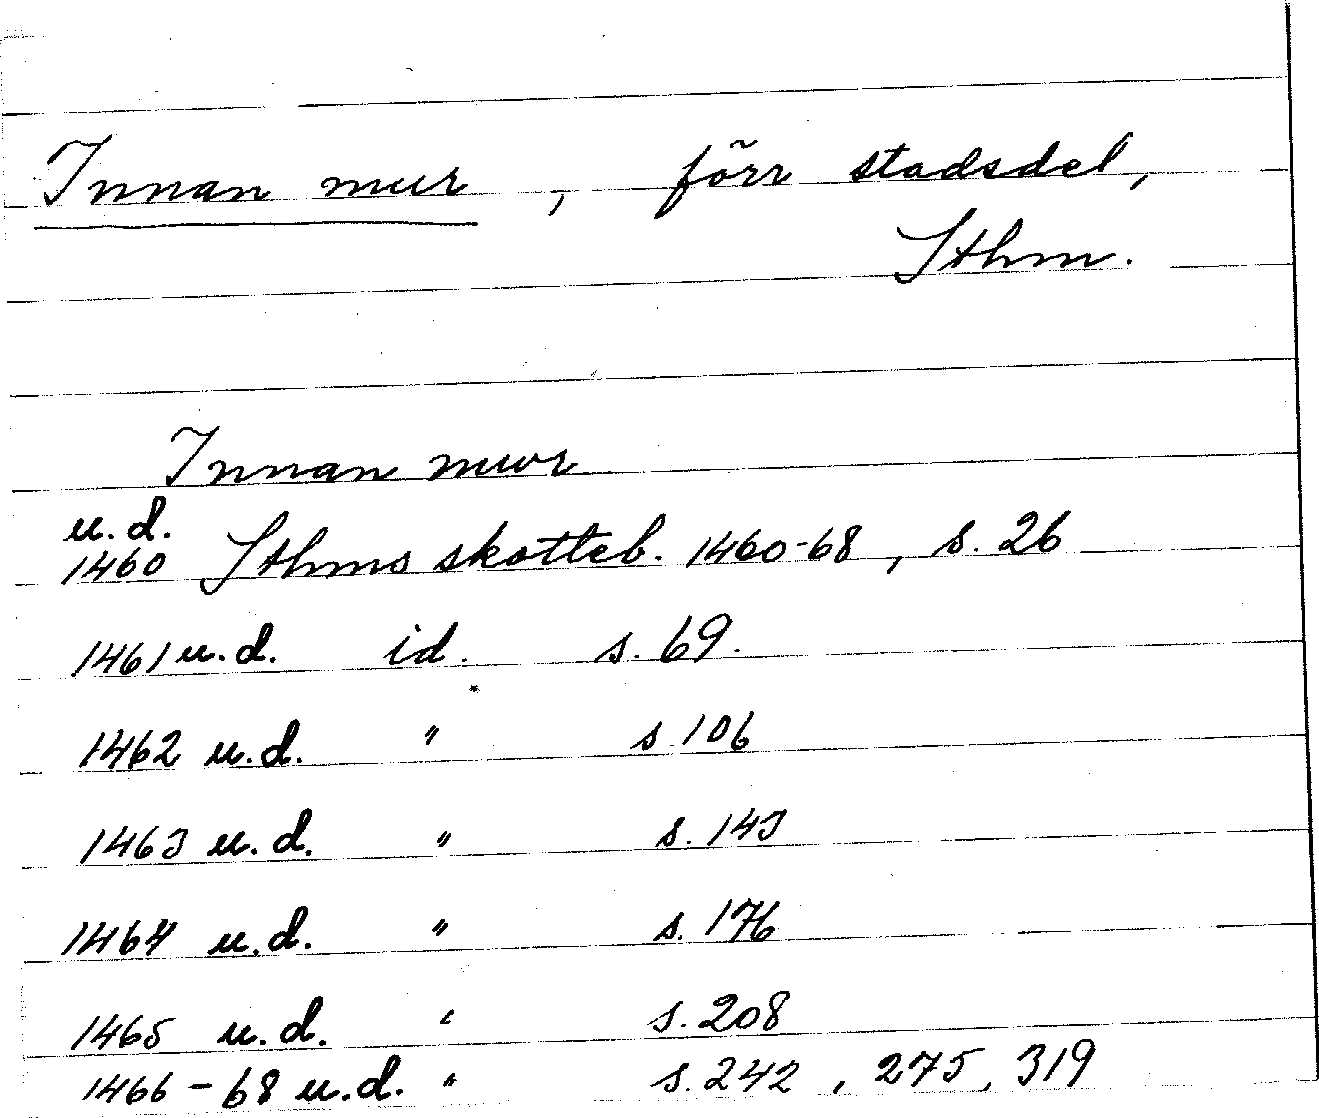 Innan mur, förr stadsdel,
Sthm.
Innan mwr
u.d.
1460 Sthms skotteb. 1460-68, s. 26
1461 u.d. id. s. 69.
1462 u.d. " s 106
1463 u.d. " s. 143
1464 u.d. " s. 176
1465 u.d. " s. 208
1466-68 u.d. " s. 242, 275, 319